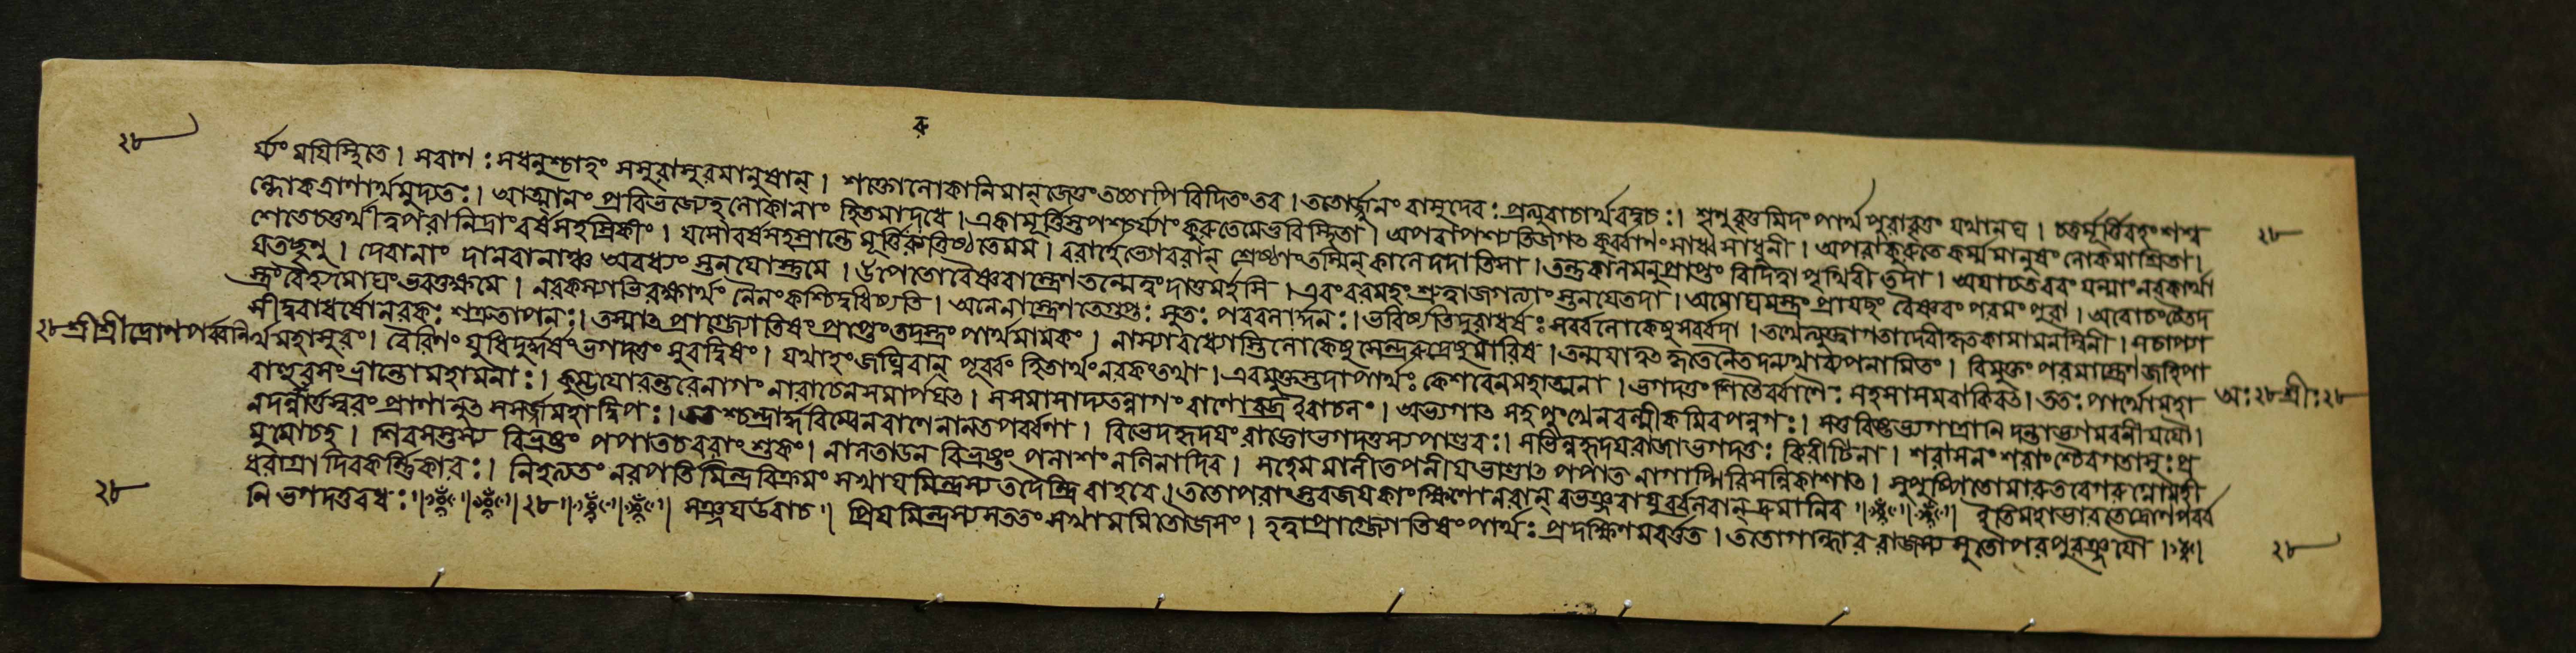 ২৮
র্য্যং ময়িস্থিতে। সবাণঃ সধনুশ্চাহং সসুরাসুরমানুষান্। শক্তোলোকানিমান্জেতুং তচ্চাপি বিদিতং তব। ততোর্জ্জুনং বাসুদেবঃ প্রত্যুবাচার্থবদ্বচঃ। শৃণুগুহ্যমিদং পার্থ পুরাবৃত্তং যথানঘ। চতুর্মূর্ত্তিরহং শশ্ব
ল্লোকত্রাণার্থমুদ্যতঃ। আত্মানং প্রবিভজ্যেহলোকানাং হিতমাদধে। একামূর্ত্তিস্তপশ্চর্য্যাং কুরুতেমেভুবিস্থিতা। অপরাপশ্যতিজগৎ কুর্ব্বাণং সাধ্বসাধুনী। অপরাকুরুতে কর্ম্মমানুষং লোকমাশ্রিতা।
শেতেচতুর্থীত্বপরানিদ্রাং বর্ষসহস্রিকাং। যাসৌবর্ষসহস্রান্তে মূর্ত্তিরুত্তিষ্ঠতেমম। বরার্হেভ্যোবরান্ শ্রেষ্ঠাংতস্মিন্ কালেদদাতিসা। তন্তুকালমনুপ্রাপ্তং বিদিত্বা পৃথিবী তদা। অযাচতবরং যন্মাংনরকার্থা
যতচ্ছৃণু। দেবানাং দানবানাঞ্চ অবধ্যং স্তনযোস্তুমে। উপেতোবৈষ্ণবাস্ত্রেণ তন্মেত্বংদাতুমর্হসি। এবংবরমহংশ্রুত্বাজগত্যাংস্তনযেতদা। অমোঘমস্ত্রং প্রাযচ্ছং বৈষ্ণবং পরমং পুরা। অবোচংচৈতদ
স্ত্রংবৈহ্যমোঘংভবতুক্ষমে। নরকস্যাভিরক্ষার্থং নৈনংকশ্চিদ্বধিষ্যতি। অনেনাস্ত্রেণতেগুপ্তঃ সুতঃ পরবলার্দ্দনঃ। ভবিষ্যতিদুরাধর্ষঃ সর্ব্বলোকেষুসর্ব্বদা। তথেত্যুক্ত্বাগতাদেবীকৃতকামামনস্বিনী। সচাপ্যা
সীদ্দুরাধর্ষোনরকঃ শত্রুতাপনঃ। তস্মাৎ প্রাগ্জ্যোতিষং প্রাপ্তং তদস্ত্রং পার্থমামকং। নাস্যাবধ্যোস্তিলোকেষু সেন্দ্ররুদ্রেষুমারিষ। তন্ময়াত্বৎ কৃতেনৈতদন্যথাব্যপনামিতং। বিমুক্তং পরমাস্ত্রেণ জহিপা
২৮ শ্রীশ্রীদ্রোণপর্ব্বনি
র্থমহাসুরং। বৈরিণং যুধিদুর্দ্ধর্ষংভগদত্তং সুরদ্বিষং। যথাহং জঘ্নিবান্ পূর্ব্বং হিতার্থংনরকংতথা। এবমুক্তস্তদাপার্থঃ কেশবেনমহাত্মনা। ভগদত্তং শিতৈর্ব্বাণৈঃ সহসাসমবাকিরৎ। ততঃ পার্থোমহা
বাহুরসংভ্রান্তোমহামনাঃ। কুম্ভযোরন্তরেনাগং নারাচেনসমার্পযৎ। সসমাসাদ্যতন্নাগং বাণোবজ্র ইবাচলং। অভ্যগাৎ সহপুংখেনবল্মীকমিবপন্নগঃ। সতুবিষ্টভ্যগাত্রানি দন্তাভ্যামবনীংযযৌ।
অঃ ২৮ শ্রীঃ ২৮
নদন্নার্ত্তস্বরং প্রাণানুৎ সসর্জ্জমহাদ্বিপঃ। ততশ্চন্দ্রার্দ্ধবিম্বেনবাণেনানতপর্ব্বণা। বিভেদহৃদযং রাজ্ঞোভগদত্তস্যপাণ্ডবঃ। সভিন্নহৃদযরাজাভগদত্তঃ কিরীটিনা। শরাসনং শরাংশ্চৈবগতাসুঃ প্র
মুমোচহ। শিরসস্তস্য বিভ্রষ্টং পপাতচবরাংশুকং। নালতাডন বিভ্রষ্টং পলাশং নলিনাদিব। সহেম মালীতপনীযভাণ্ডাৎ পপাত নাগাদ্গিরিসন্নিকাশাৎ। সুপুষ্পিতোমারুতবেগরুগ্নোমহী
ধরাগ্রাদিবকর্ন্নিকারঃ। নিহত্যতং নরপতিমিন্দ্রবিক্রমং সখাযমিন্দ্রস্য তদৈন্দ্রিরাহবে। ততোপরাংস্তবজযকাংক্ষিণোনরান্ বভঞ্জবাযুর্ব্বলবান্ দ্রুমানিব॥ ইতিমহাভারতেদ্রোণপর্ব্ব
নি ভগদত্তবধঃ॥ ॥২৮॥ ॥ সঞ্জযউবাচ॥ প্রিযমিন্দ্রস্যসততং সখাযমমিতৌজসং। হত্বাপ্রাগ্জ্যোতিষংপার্থঃ প্রদক্ষিণমবর্ত্তত। ততোগান্ধার রাজস্য সুতৌপরপুরঞ্জযৌ।
২৮
২৮
২৮